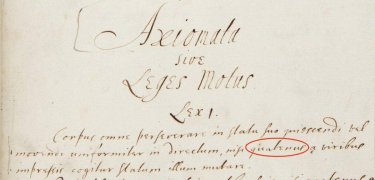 Axiomata
sive
Leges Motus
Lex 1.
Corpus omne perseverare in statu suo quiescendi vel
movendi uniformiter in directum, nisi quatenus a viribus
impressis cogitur statum illum mutare.